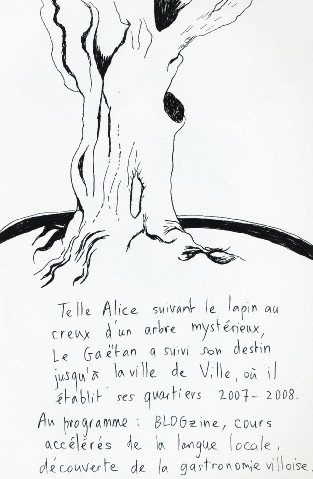 Telle Alice suivant le lapin au
creux d'un arbre mystérieux,
Le Gaëtan a suivi son destin
jusqu'à la ville de Ville, où il
établit ses quartiers 2007-2008.
Au programme : BLOGzine, cours
accélérés de la langue locale,
découverte de la gastronomie villoise.